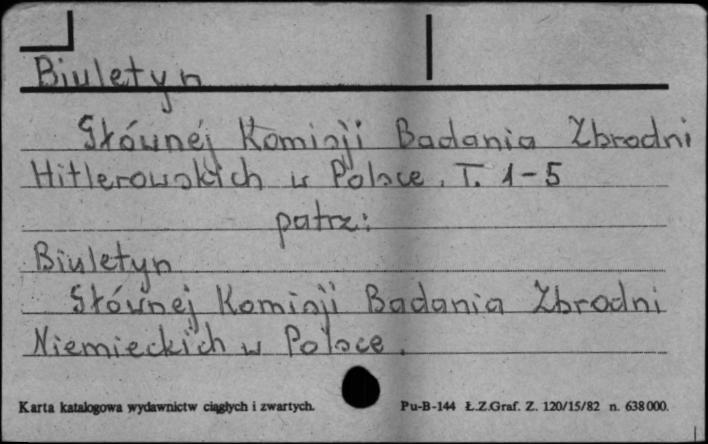 Biuletyn
Głównej Komisji Badania Zbrodni
Hitlerowskich w Polsce. T. 1-5
patrz:
Biuletyn
Głównej Komisji Badania Zbrodni
Niemieckich w Polsce.
Karta katalogowa wydawnictw ciągłych i zwartych. Pu-B-144 Ł.Z.Graf. Z. 120/15/82 n. 638000.